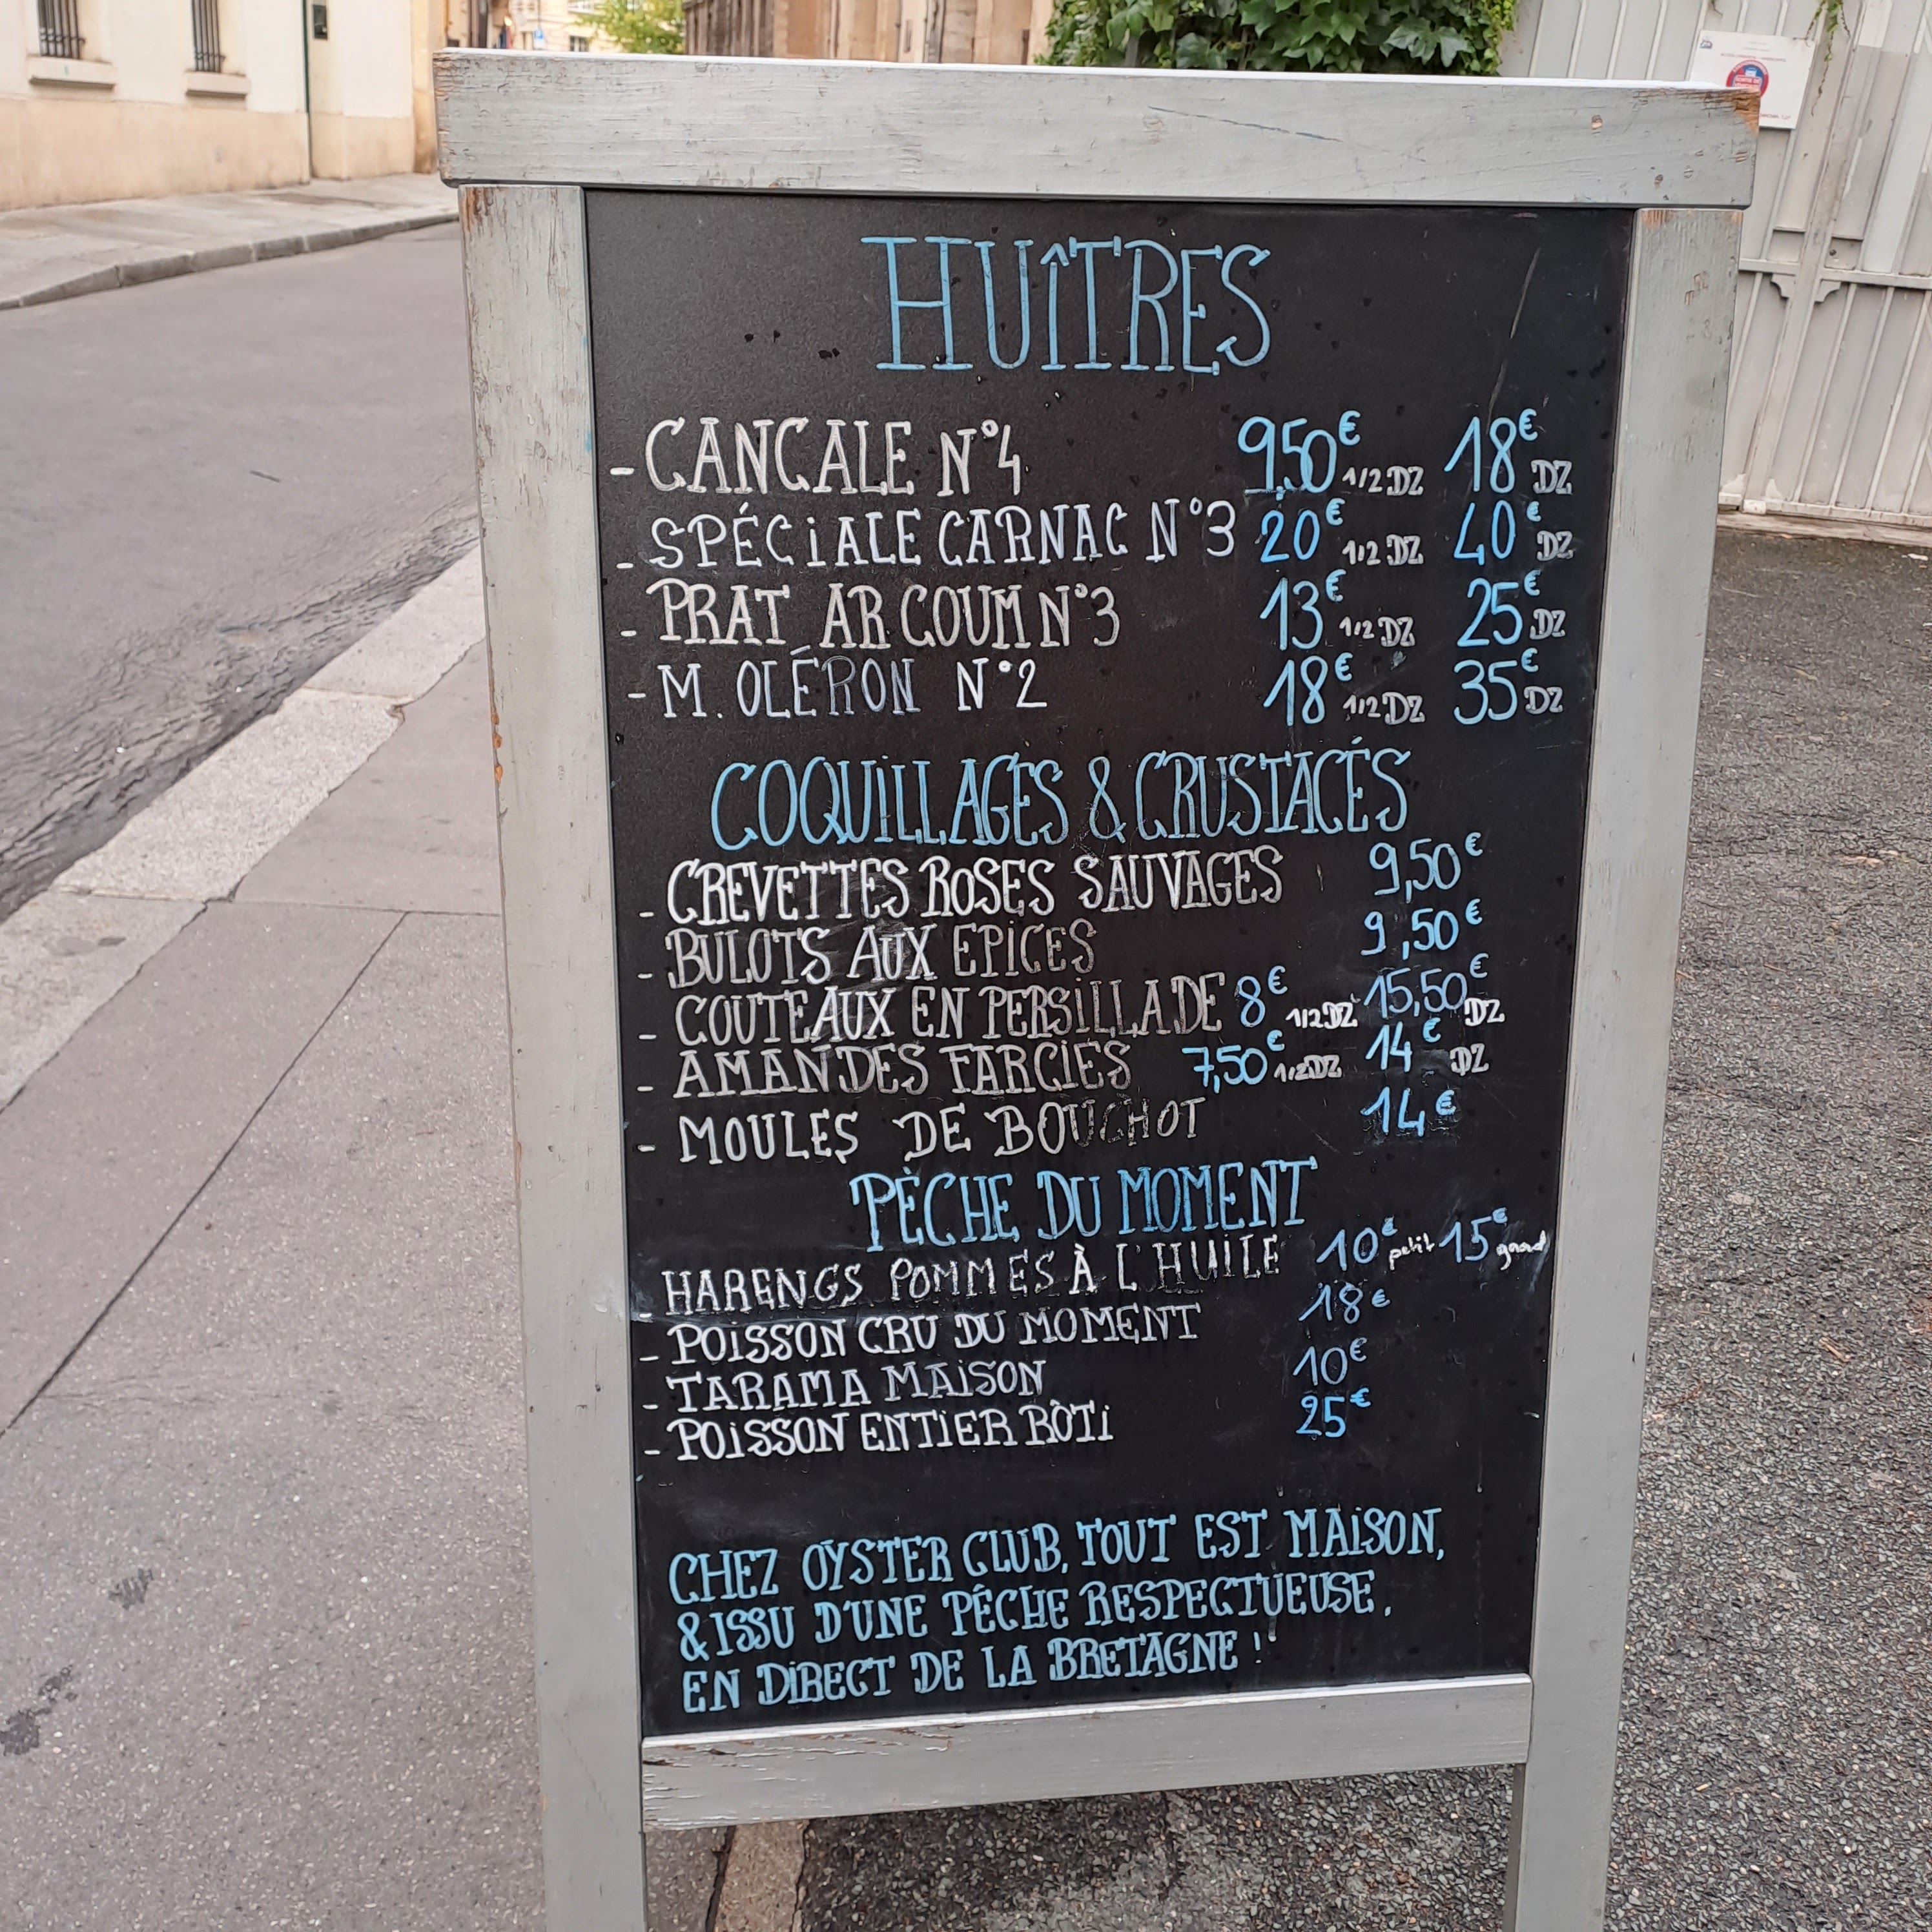 HUÎTRES
- CANCALE N°4 9,50€ 1/2 DZ 18€ DZ
- SPÉCiALE CARNAC N°3 20€ 1/2 DZ 40€ DZ
- PRAT AR COUM N°3 13€ 1/2 DZ 25€ DZ
- M. OLÉRON N°2 18€ 1/2 DZ 35€ DZ
COQUiLLAGES & CRUSTACÉS
- CREVETTES ROSES SAUVAGES 9,50€
- BULOTS AUX EPiCES 9,50€
- COUTEAUX EN PERSiLLADE 8€ 1/2 DZ 15,50€ DZ
- AMANDES FARCiES 7,50€ 1/2 DZ 14€ DZ
- MOULES DE BOUCHOT 14€
PÊCHE DU MOMENT
- HARENGS POMMES À L'HUiLE 10€ petit 15€ grand
- POiSSON CRU DU MOMENT 18€
- TARAMA MAiSON 10€
- POiSSON ENTiER RÔTi 25€
CHEZ OYSTER CLUB, TOUT EST MAiSON,
& ISSU D'UNE PÊCHE RESPECTUEUSE,
EN DiRECT DE LA BRETAGNE !